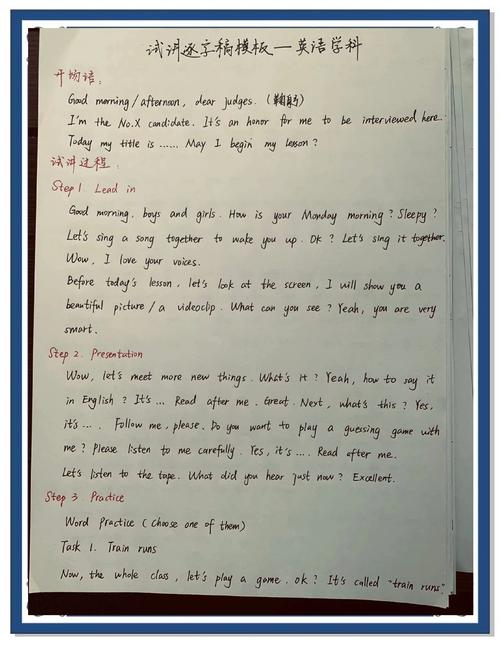 试讲逐字稿模板—英语学科
开场语:
Good morning/afternoon, dear judges. (鞠躬)
I'm the No.X candidate. It's an honor for me to be interviewed here.
Today my title is ...... May I begin my lesson?
试讲过程:
Step 1. Lead in
Good morning, boys and girls. How is your Monday morning? Sleepy?
Let's sing a song together to wake you up. Ok? Let's sing it together.
Wow, I love your voices.
Before today's lesson, let's look at the screen, I will show you a
beautiful picture/a videoclip. What can you see? Yeah, you are very
smart.
Step 2. Presentation
Wow, let's meet more new things. What's it? Yeah, how to say it
in English? It's ... Read after me. Great. Next, what's this? Yes,
it's .... Follow me, please. Do you want to play a guessing game with
me? Please listen to me carefully. Yes, it's .... Read after me.
Let's listen to the tape. What did you hear just now? Excellent.
Step 3 Practice
Word Practice (Choose one of them)
Task 1. Train runs
Now, the whole class, let's play a game. ok? It's called "train runs".